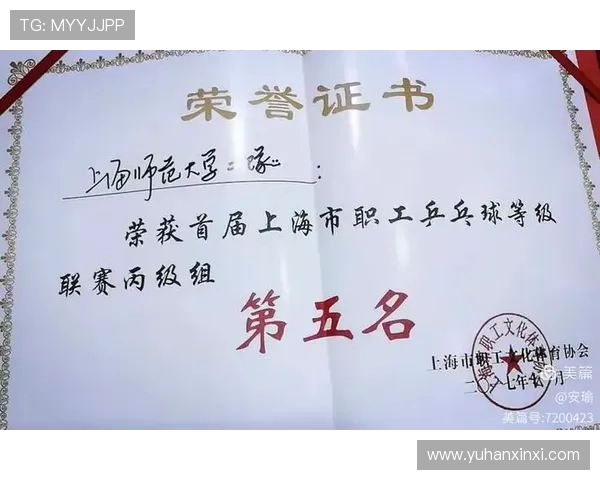 TG: MYYJJPP
荣誉证书
上海师范大学二队:
荣获首届上海市职工乒乓球等级
联赛丙级组
第五名
上海市职工文化体育协会
二〇一七年 月
美篇
@安瑜
美篇号:7200423
www.yuhanxinxi.com